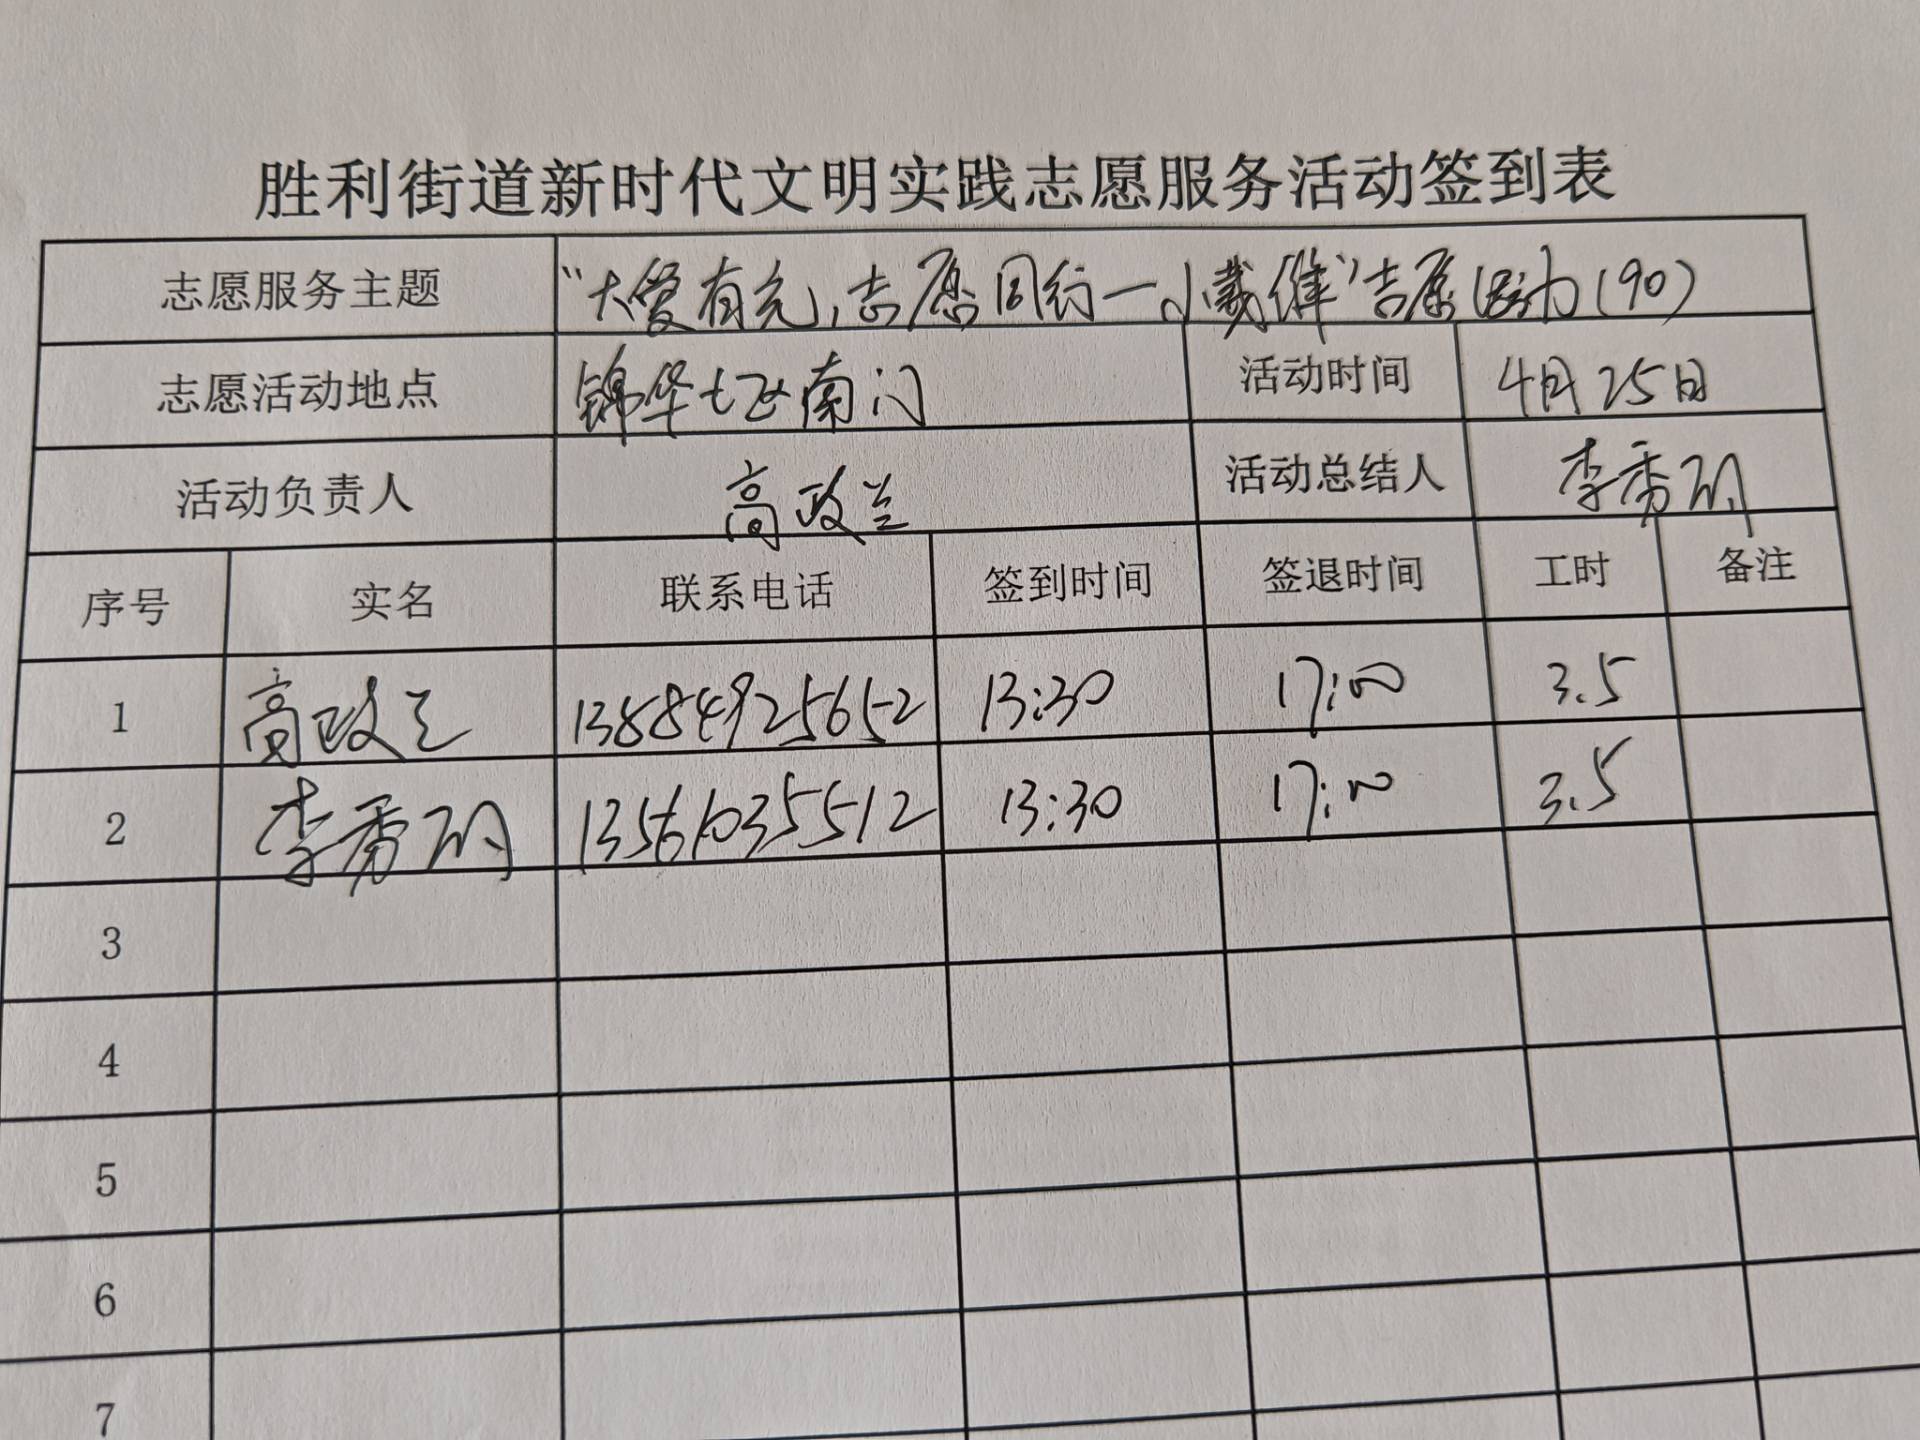 胜利街道新时代文明实践志愿服务活动签到表
志愿服务主题 "大爱有光,志愿同行一小 " 志愿活动(90)
志愿活动地点 锦华七区南门 活动时间 4月25日
活动负责人 高政兰 活动总结人 李秀丽
序号 实名 联系电话 签到时间 签退时间 工时 备注
1 高政兰 13884925652 13:30 17:00 3.5
2 李秀丽 13561035512 13:30 17:00 3.5
3
4
5
6
7